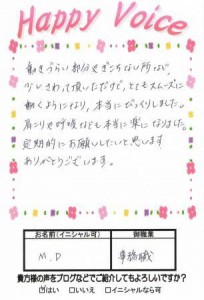 Happy Voice
動きづらい部分やぎこちない所など、
少しさわって頂いただけで、とてもスムーズに
動くようになり、本当にびっくりしました。
肩こりや呼吸なども本当に楽になりました。
定期的にお願いしたいと思います
ありがとうございます。
お名前(イニシャル可)
御職業
M.D
事務職
貴方様の声をブログなどでご紹介してもよろしいですか?
☑はい □いいえ □イニシャルなら可